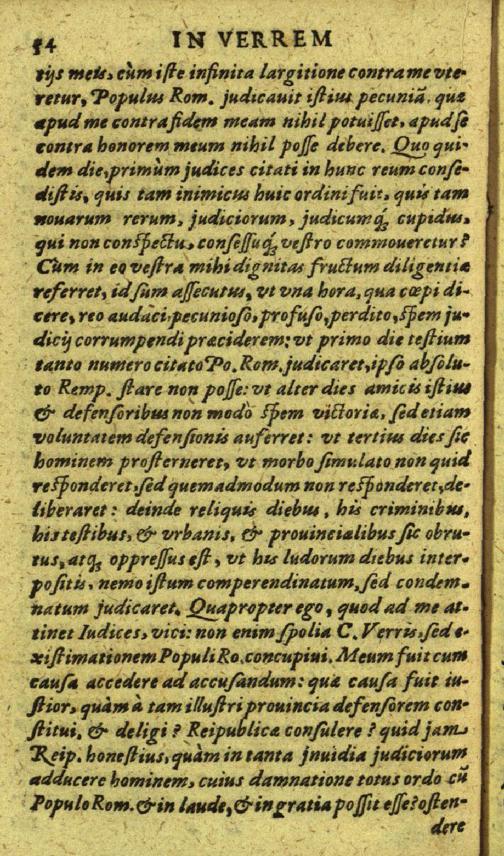 54 IN VERREM
tijs meis, cùm iste infinita largitione contra me vte-
retur, Populus Rom. judicauit istius pecuniã, quæ
apud me contra fidem meam nihil potuisset, apud se
contra honorem meum nihil posse debere. Quo qui-
dem die, primùm judices citati in hunc reum conse-
distis, quis tam inimicus huic ordini fuit, quis tam
nouarum rerum, judiciorum, judicumq́; cupidus,
qui non conspectu, consessuq́; vestro commoueretur?
Cùm in eo vestra mihi dignitas fructum diligentiæ
referret, id sum assecutus, vt vna hora, qua cœpi di-
cere, reo audaci, pecunioso, profuso, perdito, spem ju-
dicij corrumpendi præciderem: vt primo die testium
tanto numero citato Po. Rom. judicaret, ipso absolu-
to Remp. stare non posse: vt alter dies amicis istius
& defensoribus non modò spem victoriæ, sed etiam
voluntatem defensionis auferret: vt tertius dies sic
hominem prosterneret, vt morbo simulato non quid
responderet, sed quemadmodum non responderet, de-
liberaret: deinde reliquis diebus, his criminibus,
his testibus, & vrbanis, & prouincialibus sic obru-
tus, atq́; oppressus est, vt his ludorum diebus inter-
positis, nemo istum comperendinatum, sed condem-
natum judicaret. Quapropter ego, quod ad me at-
tinet Iudices, vici: non enim spolia C. Verris, sed e-
xistimationem Populi Ro. concupiui. Meum fuit cum
causa accedere ad accusandum: quæ causa fuit iu-
stior, quàm à tam illustri prouincia defensorem con-
stitui, & deligi? Reipublicæ consulere? quid jam
Reip. honestius, quàm in tanta jnuidia judiciorum
adducere hominem, cuius damnatione totus ordo cũ
Populo Rom. & in laude, & in gratia possit esse? osten-
dere